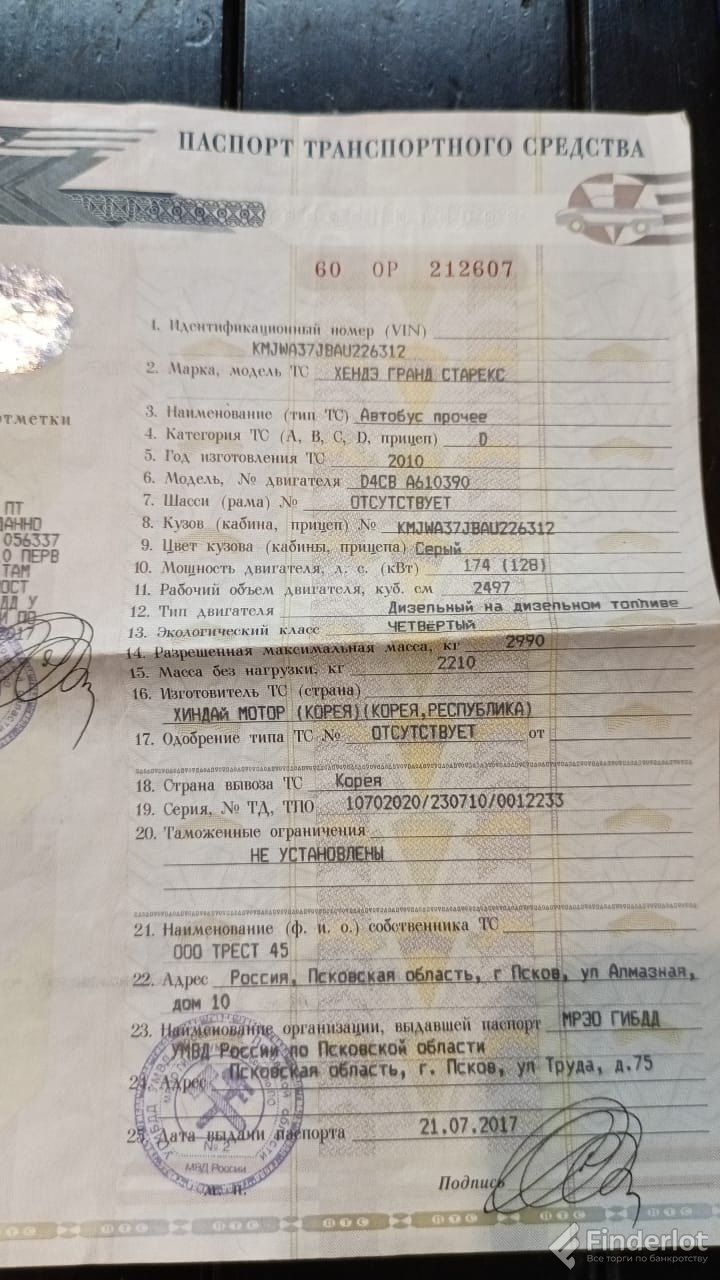 ПАСПОРТ ТРАНСПОРТНОГО СРЕДСТВА
60 ОР 212607
1. Идентификационный номер (VIN)
KMJWA37JBAU226312
2. Марка, модель ТС ХЕНДЭ ГРАНД СТАРЕКС
3. Наименование (тип ТС) Автобус прочее
4. Категория ТС (А, В, С, D, прицеп) D
5. Год изготовления ТС 2010
6. Модель, № двигателя D4CB A610390
7. Шасси (рама) № ОТСУТСТВУЕТ
8. Кузов (кабина, прицеп) № KMJWA37JBAU226312
9. Цвет кузова (кабины, прицепа) Серый
10. Мощность двигателя, л. с. (кВт) 174 (128)
11. Рабочий объем двигателя, куб. см 2497
12. Тип двигателя Дизельный на дизельном топливе
13. Экологический класс ЧЕТВЕРТЫЙ
14. Разрешенная максимальная масса, кг 2990
15. Масса без нагрузки, кг 2210
16. Изготовитель ТС (страна)
ХИНДАЙ МОТОР (КОРЕЯ)(КОРЕЯ,РЕСПУБЛИКА)
17. Одобрение типа ТС № ОТСУТСТВУЕТ от
18. Страна вывоза ТС Корея
19. Серия, № ТД, ТПО 10702020/230710/0012233
20. Таможенные ограничения
НЕ УСТАНОВЛЕНЫ
21. Наименование (ф. и. о.) собственника ТС
ООО ТРЕСТ 45
22. Адрес Россия, Псковская область, г Псков, ул Алмазная,
дом 10
23. Наименование организации, выдавшей паспорт МРЭО ГИБДД
УМВД России по Псковской области
24. Адрес Псковская область, г. Псков, ул Труда, д.75
25. Дата выдачи паспорта 21.07.2017
№ 2
МВД России
М. П.
Подпись
отметки
ПТ
ДАННО
056337
О ПЕРВ
ТАМ
ОСТ
ДД У
ПТС ПТС ПТС ПТС ПТС
Finderlot
Все торги по банкротству